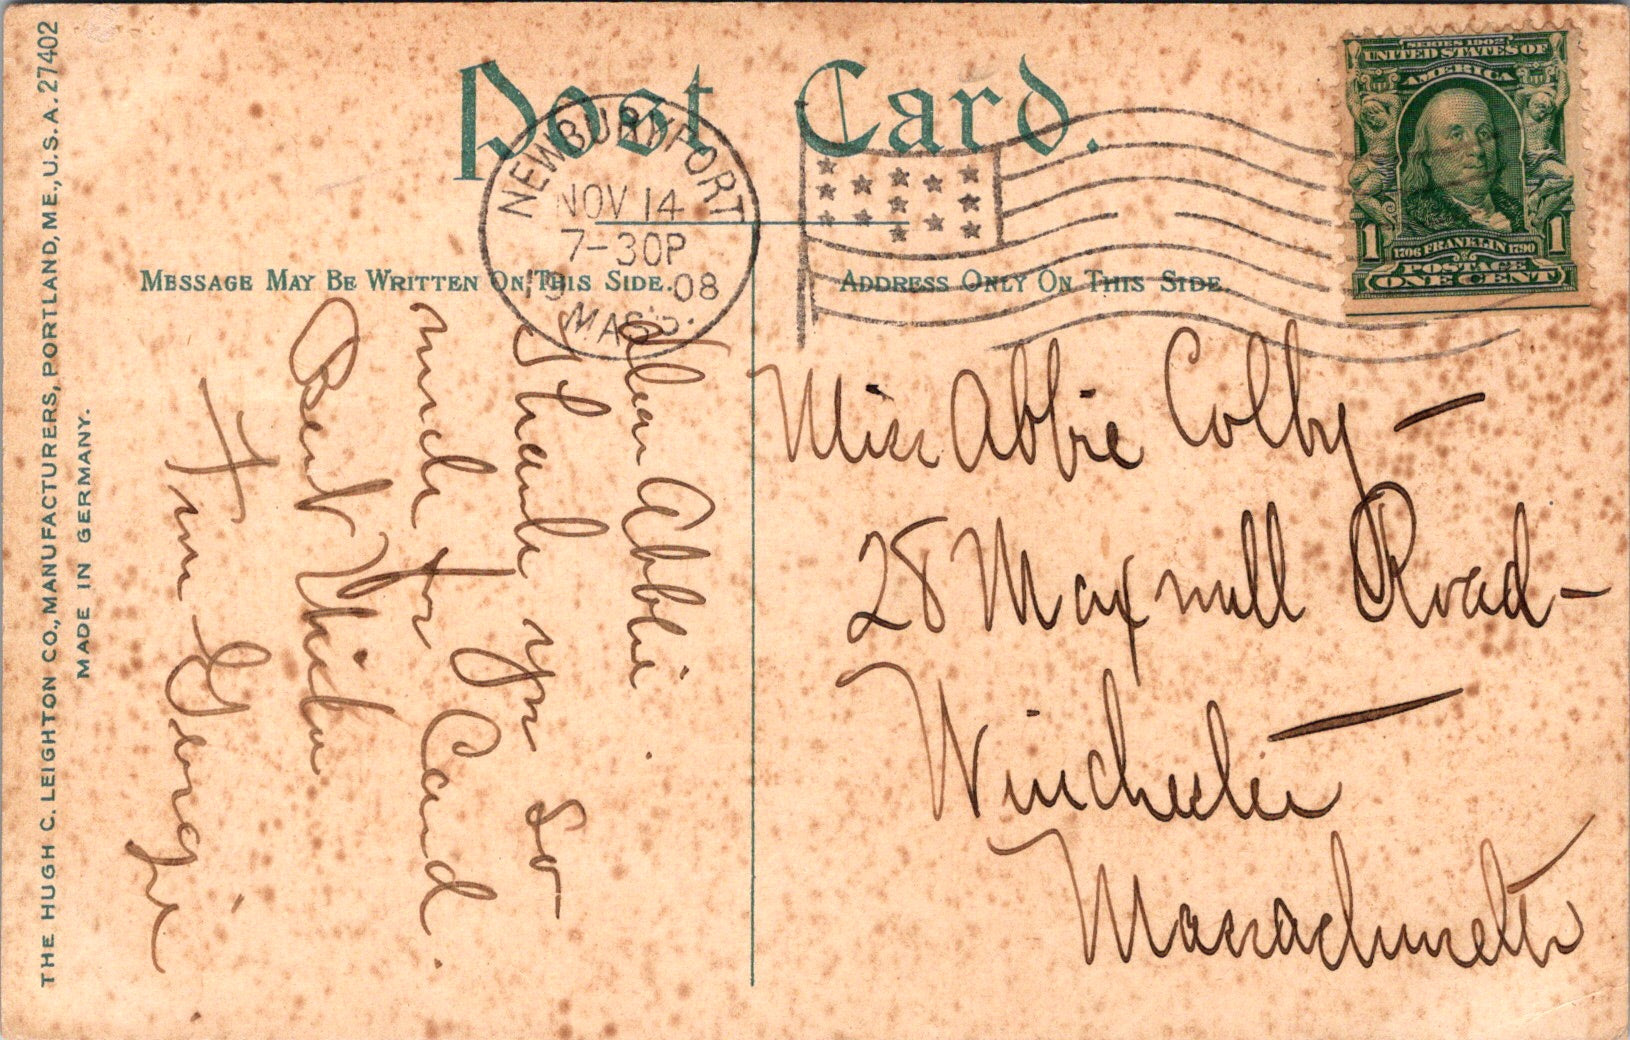 Post Card.
NEWBURYPORT
NOV 14
7-30P
1908
MASS.
SERIES 1902
UNITED STATES OF
AMERICA
1 1706 FRANKLIN 1790 1
POSTAGE
ONE CENT
MESSAGE MAY BE WRITTEN ON THIS SIDE.
ADDRESS ONLY ON THIS SIDE.
THE HUGH C. LEIGHTON CO., MANUFACTURERS, PORTLAND, ME., U.S.A. 27402
MADE IN GERMANY.
Dear Abbie.
Thank you so
much for Card.
Best Wishes
From Georgie
Miss Abbie Colby —
28 Maxwell Road —
Winchester —
Massachusetts